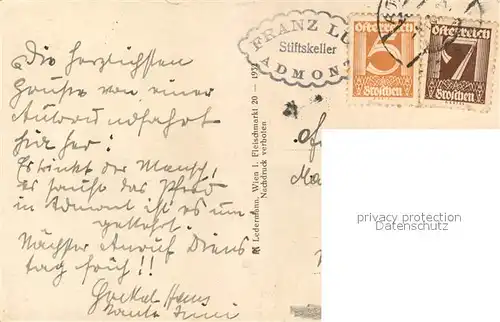 Die herzlichsten
Grüsse von einer
Autorundfahrt
hier her!
Es trinkt der Mensch,
es säuft das Pferd
in Admont ist es um
gekehrt.
Nächster Anruf Diens
tag früh!!
Hans
Tante
FRANZ LU
Stiftskeller
ADMONT
Österreich
5
Groschen
Österreich
7
Groschen
Ledermann, Wien I. Fleischmarkt 20 — 19
Nachdruck verboten
privacy protection
Datenschutz